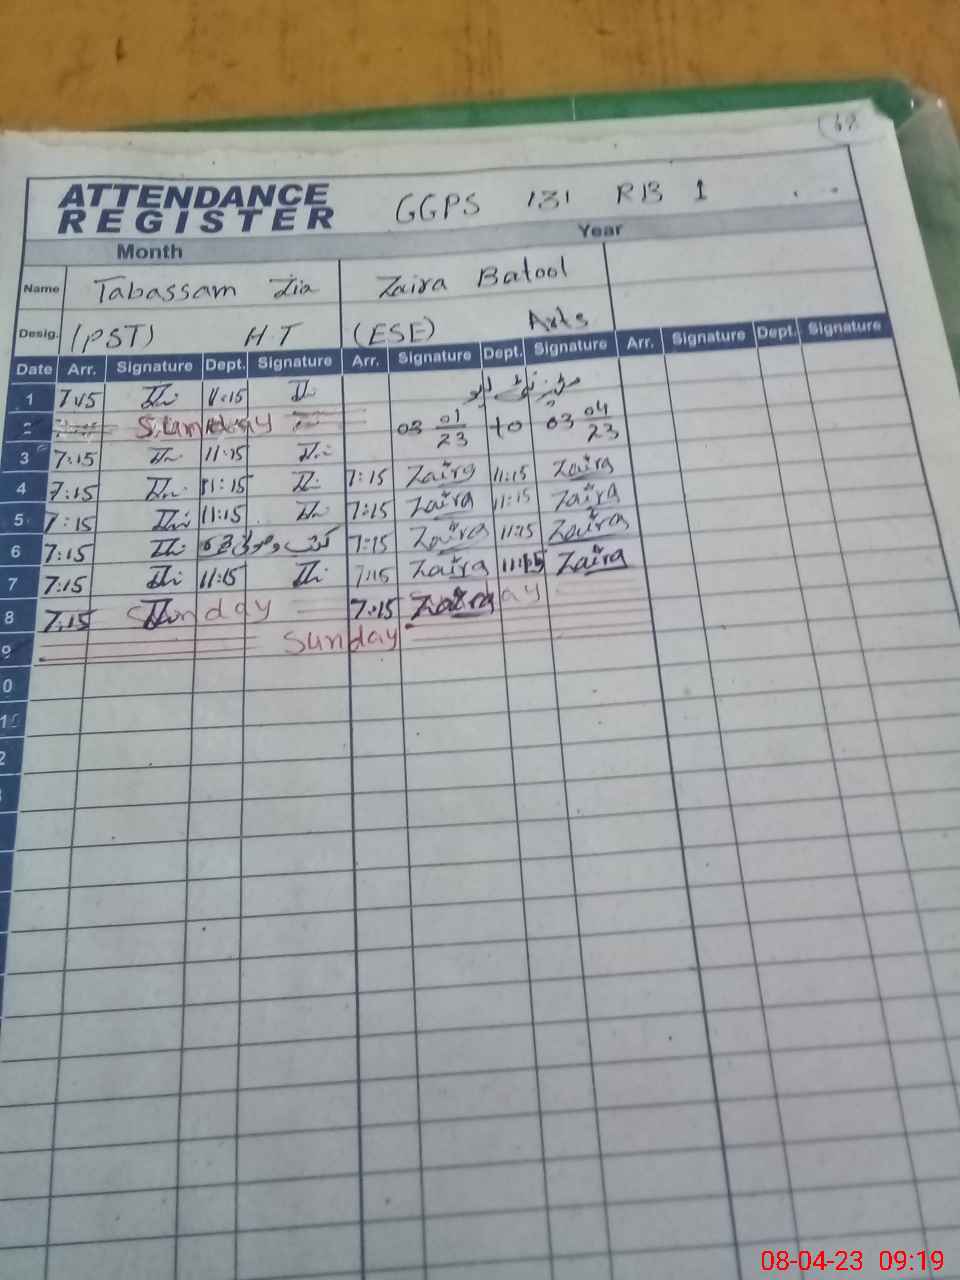 ATTENDANCE
REGISTER
GGPS 131 RB 1
Month Year
Name Tabassam Zia Zaira Batool
Desig. (PST) H.T (ESE) Arts
Date Arr. Signature Dept. Signature Arr. Signature Dept. Signature Arr. Signature Dept. Signature
1 7:15 11:15
2 Sunday 03 01 23 to 03 04 23
3 7:15 11:15
4 7:15 11:15 7:15 Zaira 11:15 Zaira
5 7:15 11:15 7:15 Zaira 11:15 Zaira
6 7:15 7:15 Zaira 11:15 Zaira
7 7:15 11:15 7:15 Zaira 11:15 Zaira
8 7:15 Sunday 7:15 Zaira
9 Sunday
08-04-23 09:19